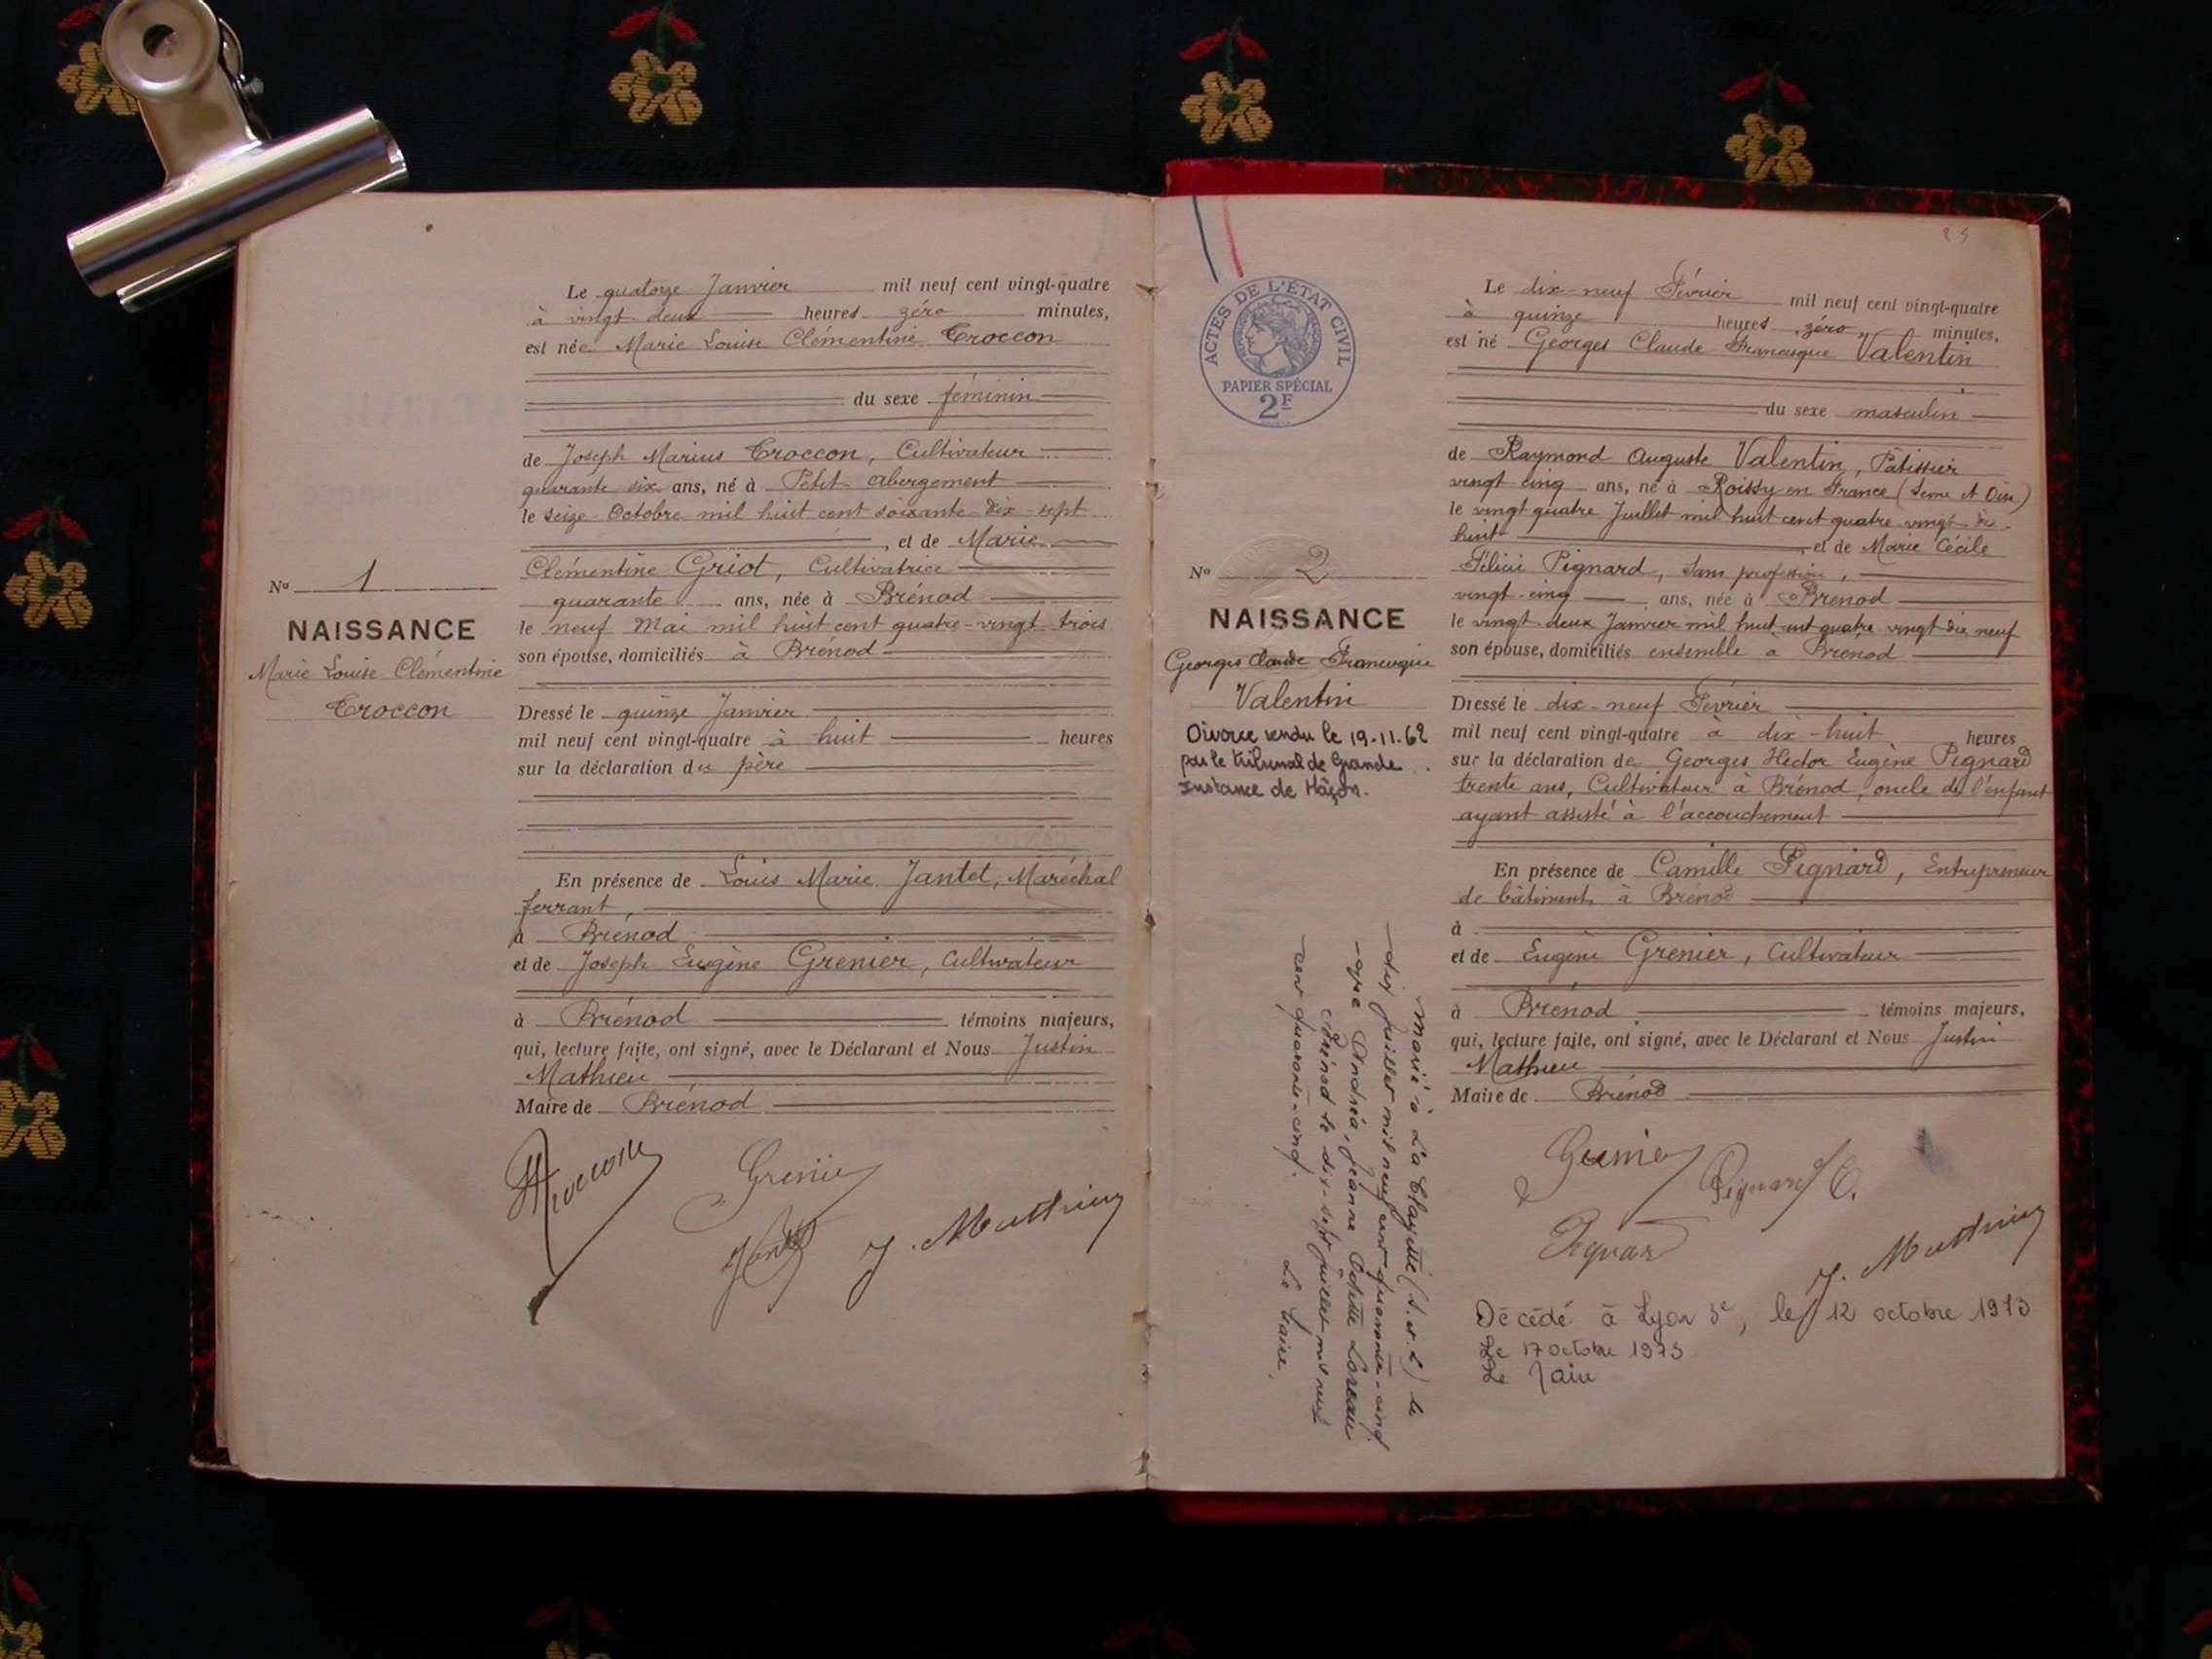 Le quatorze Janvier mil neuf cent vingt-quatre
à vingt deux heures zéro minutes,
est née Marie Louise Clémentine Troccon
du sexe féminin
de Joseph Marius Troccon, Cultivateur
quarante six ans, né à Petit Abergement
le seize Octobre mil huit cent soixante-dix-sept
, et de Marie
Clémentine Griot, Cultivatrice
quarante ans, née à Brénod
le neuf Mai mil huit cent quatre-vingt trois
son épouse, domiciliés à Brénod
No 1
NAISSANCE
Marie Louise Clémentine
Troccon
Dressé le quinze Janvier
mil neuf cent vingt-quatre à huit heures
sur la déclaration du père
En présence de Louis Marie Jantet, Maréchal
ferrant,
à Brénod
et de Joseph Eugène Grenier, Cultivateur
à Brénod témoins majeurs,
qui, lecture faite, ont signé, avec le Déclarant et Nous Justin
Mathieu
Maire de Brénod
Troccon
Grenier
J. Mathieu
ACTES DE L'ÉTAT CIVIL
PAPIER SPÉCIAL
2F
No 2
NAISSANCE
Georges Claude Francisque
Valentin
Divorce rendu le 19-11-62
par le tribunal de Grande
Instance de Mâcon.
Marié à La Clayette (S. et L) le
dix juillet mil neuf cent quarante-cinq
avec Andréa, Jeanne Odette Loreau
Brénod le dix-sept juillet mil neuf
cent quarante-cinq.
Le Maire,
Le dix-neuf Février mil neuf cent vingt-quatre
à quinze heures zéro minutes,
est né Georges Claude Francisque Valentin
du sexe masculin
de Raymond Auguste Valentin, Pâtissier
vingt cinq ans, né à Roissy en France (Seine et Oise)
le vingt quatre Juillet mil huit cent quatre-vingt dix-
huit et de Marie Cécile
Félicie Pignard, sans profession,
vingt-cinq ans, née à Brénod
le vingt deux Janvier mil huit cent quatre vingt dix neuf
son épouse, domiciliés ensemble à Brénod
Dressé le dix-neuf Février
mil neuf cent vingt-quatre à dix-huit heures
sur la déclaration de Georges Hector Eugène Pignard
trente ans, Cultivateur à Brénod, oncle de l'enfant
ayant assisté à l'accouchement
En présence de Camille Pignard, Entrepreneur
de bâtiments à Brénod
à
et de Eugène Grenier, Cultivateur
à Brénod témoins majeurs,
qui, lecture faite, ont signé, avec le Déclarant et Nous Justin
Mathieu
Maire de Brénod
Grenier
Pignard C.
Pignard
J. Mathieu
Décédé à Lyon 3e, le 12 octobre 1973
Le 17 octobre 1973
Le Maire